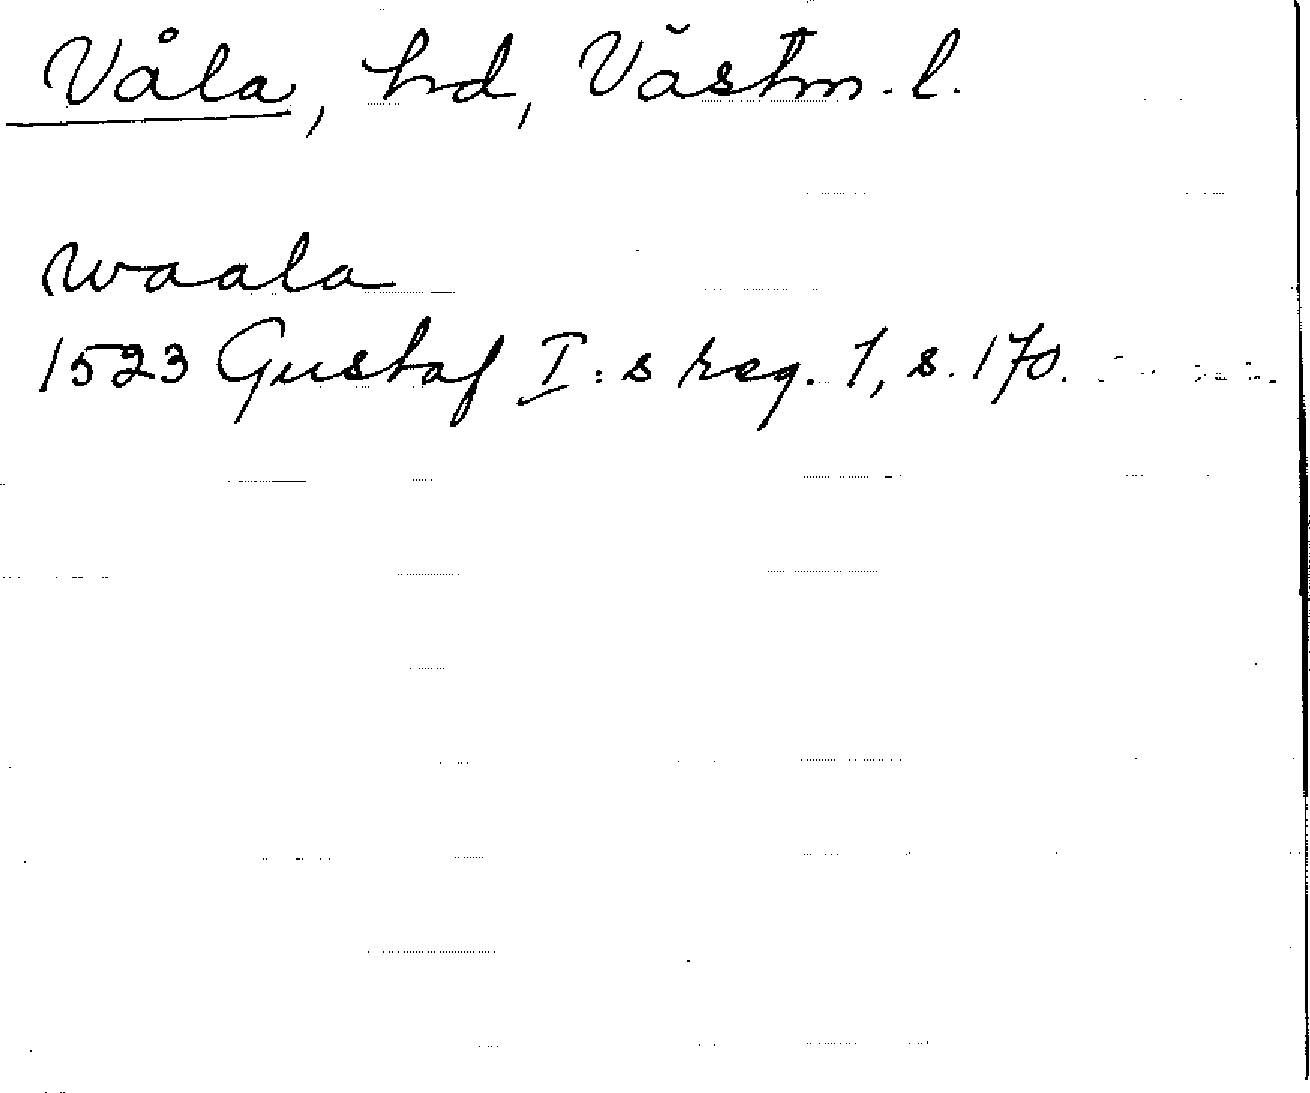 Våla, hd, Västm. l.
Waala
1523 Gustaf I:s reg. 1, s. 170.